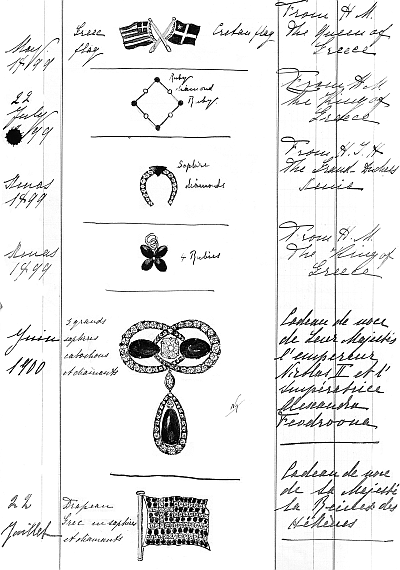 May
1899
Grec
flag
Cretan flag
From H.M.
The Queen of
Greece
22
July
99
Ruby
diamond
Ruby
From H.M.
the King of
Greece
Xmas
1899
Saphire
diamonds
From H.I.H
The Grand Duchess
Xenie
Xmas
1899
4 Rubies
From H.M.
The King of
Greece
Juin
1900
3 grands
saphires
cabochons
et diamants
Cadeau de noce
de Leur Majestés
l'empereur
Nicolas II et l'
impératrice
Alexandra
Feodrovna
22
Juillet
Drapeau
Grec en saphires
et diamants
Cadeau de noce
de Sa Majesté
la Reine des
Hélènes